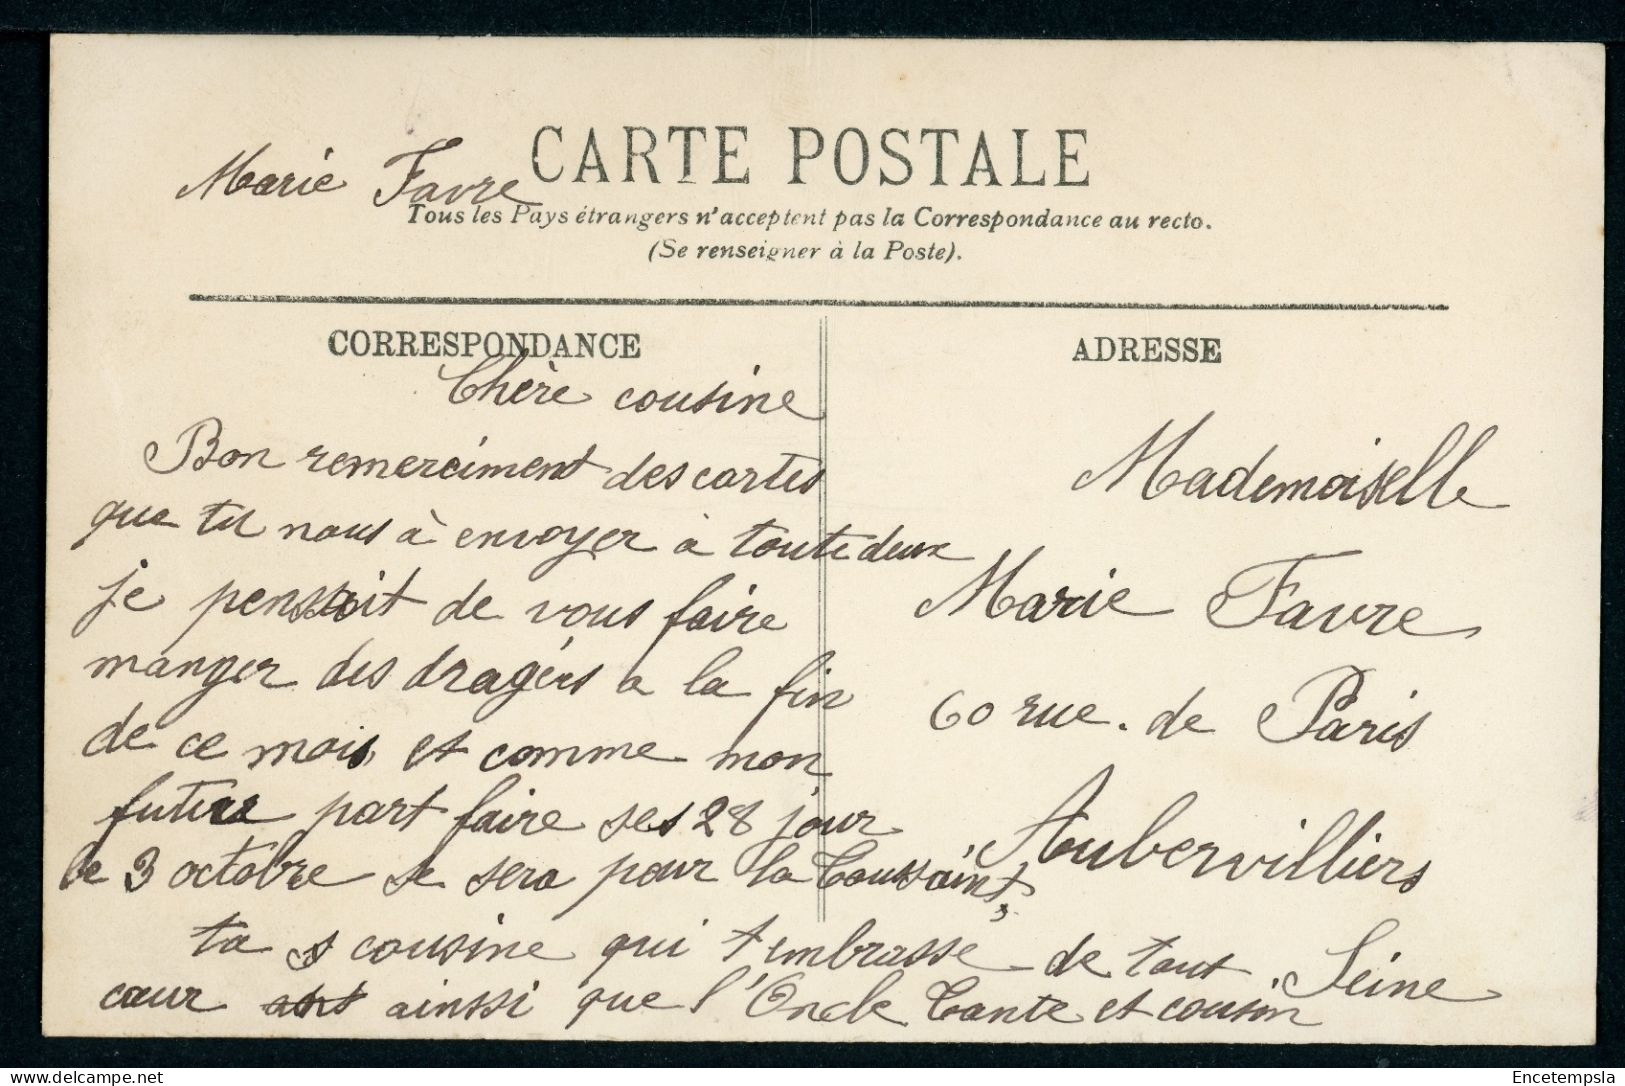 Marie Favre
CARTE POSTALE
Tous les Pays étrangers n'acceptent pas la Correspondance au recto.
(Se renseigner à la Poste).
CORRESPONDANCE
Chère cousine
Bon remerciment des cartes
que tu nous à envoyer a toute deux
je pensait de vous faire
manger des dragérs a la fin
de ce mois et comme mon
futur part faire ses 28 jour
le 3 octobre se sera pour la Toussaint,
ta cousine qui t'embrasse de tout
cœur ainssi que l'Oncle Tante et cousin
ADRESSE
Mademoiselle
Marie Favre
60 rue. de Paris
Aubervilliers
Seine
delcampe.net
Encetempsla